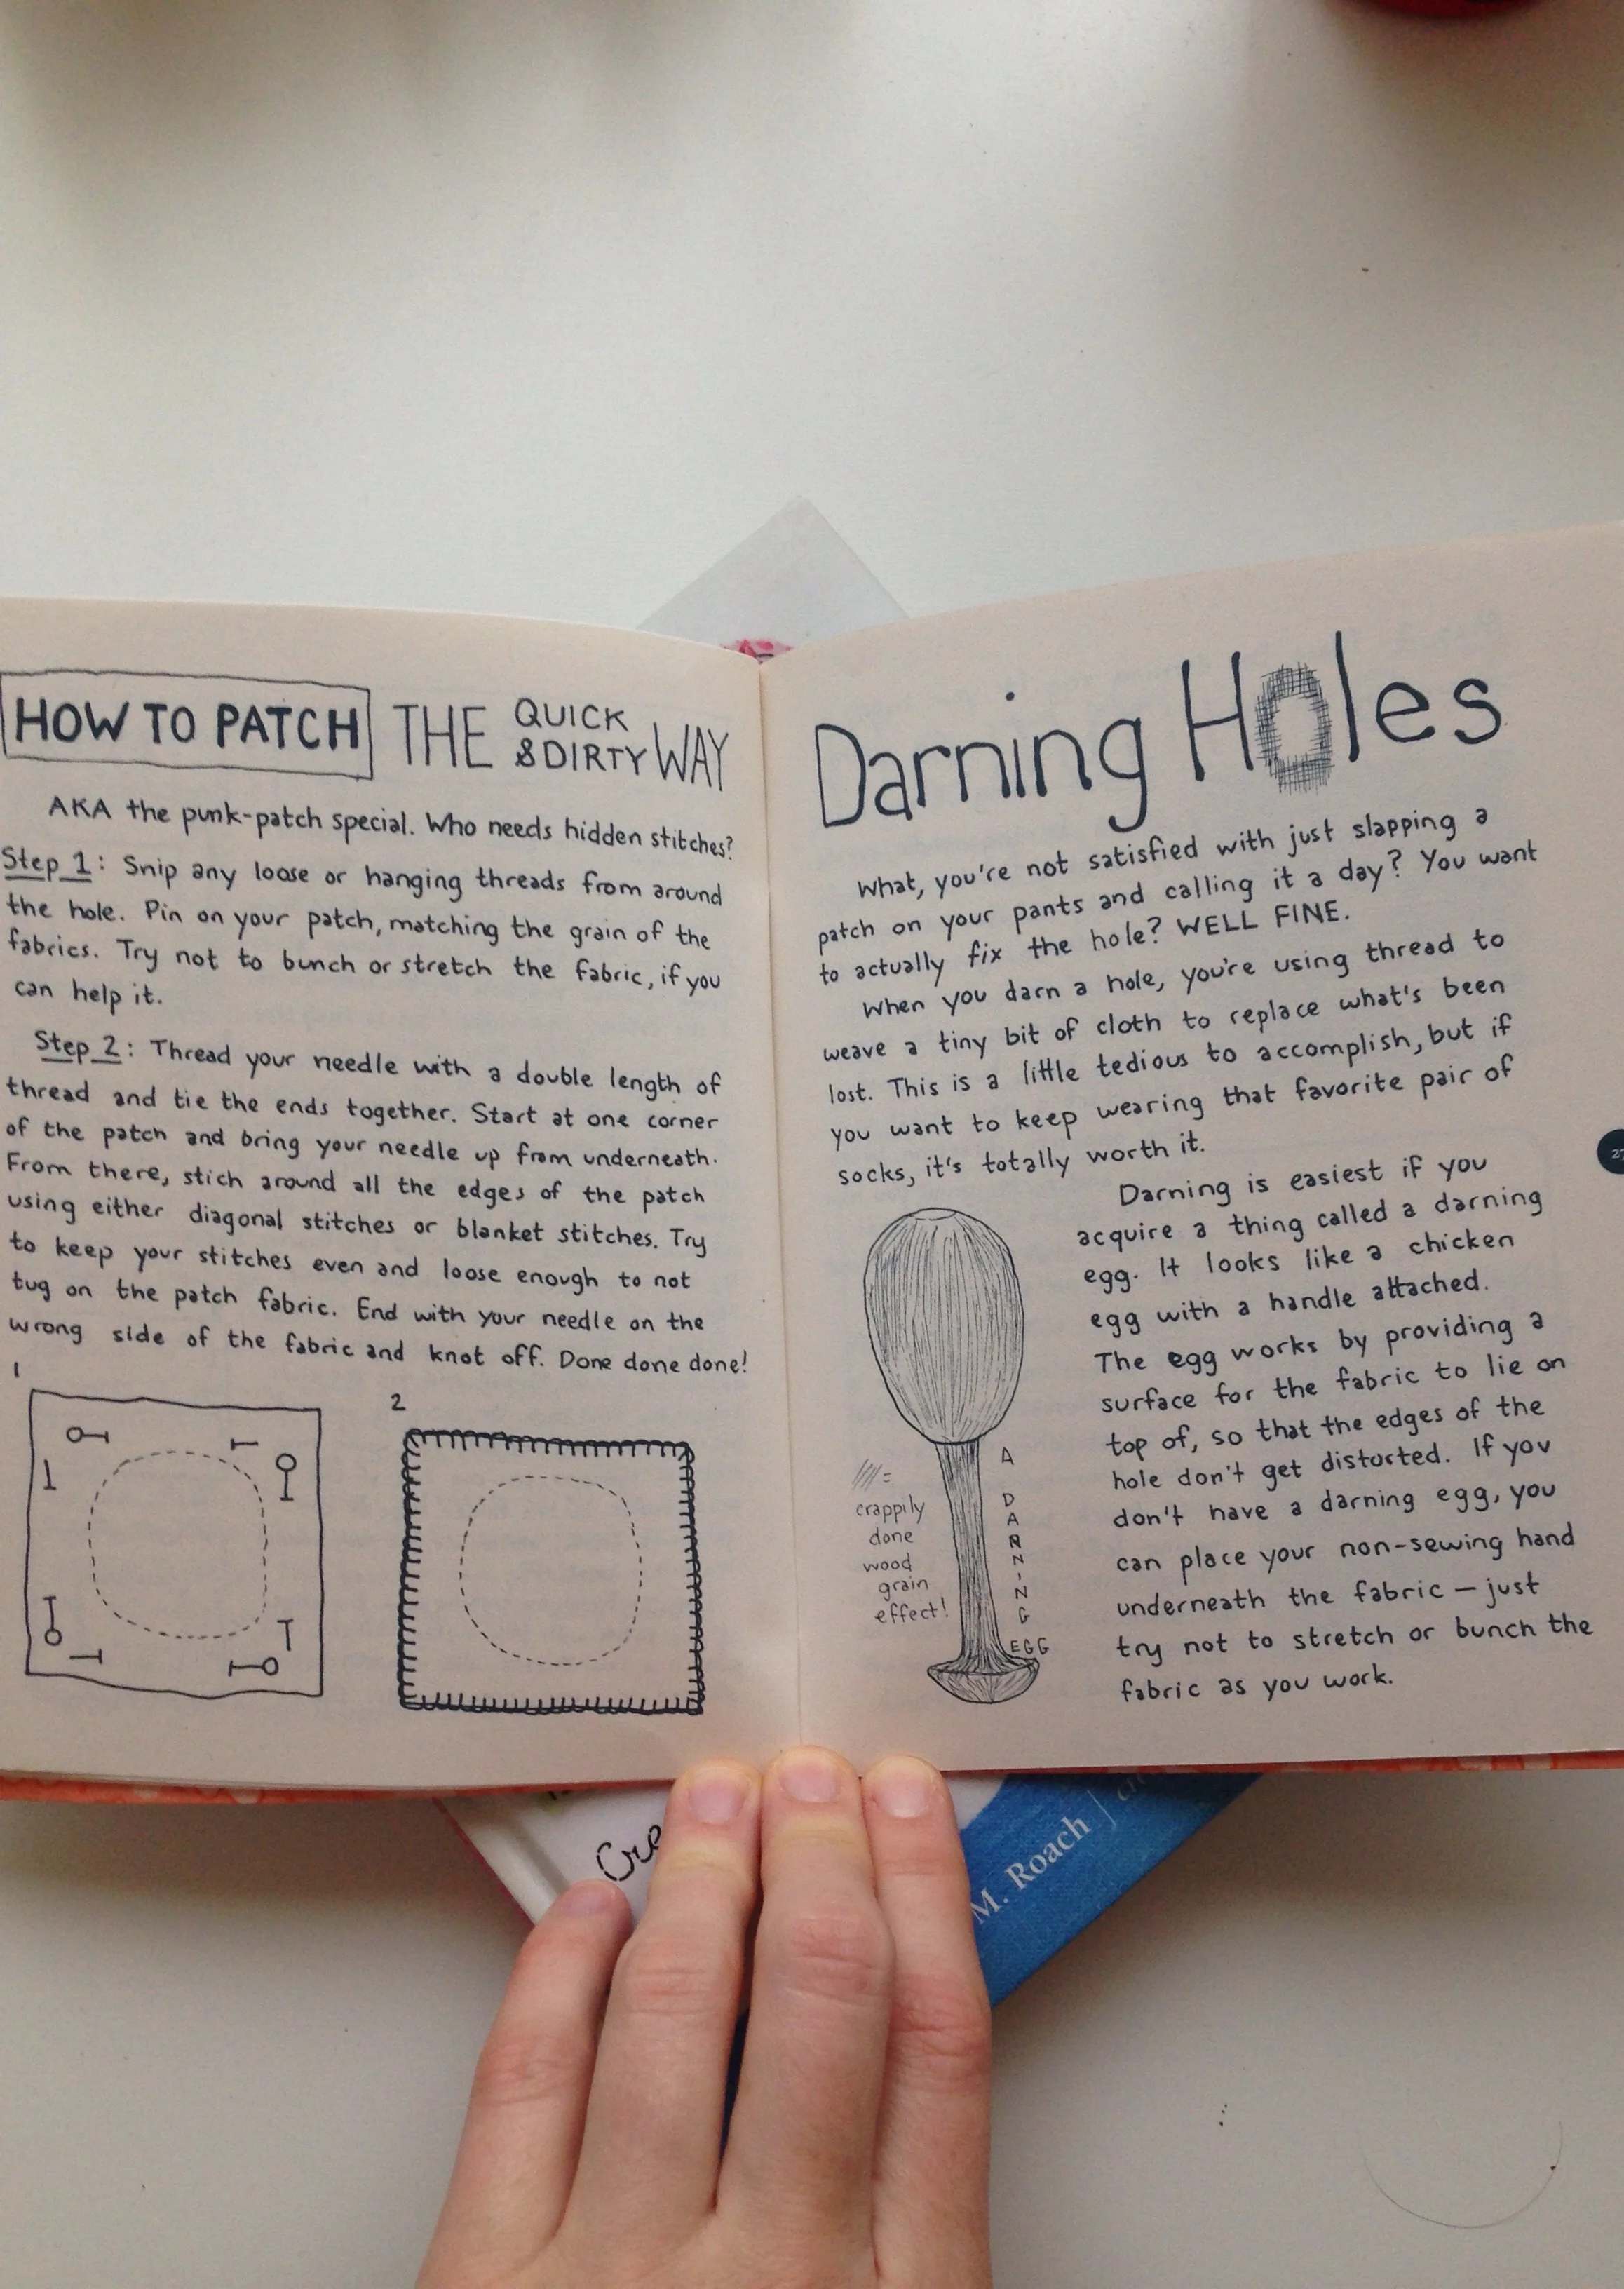 HOW TO PATCH THE QUICK & DIRTY WAY
AKA the punk-patch special. Who needs hidden stitches?
Step 1: Snip any loose or hanging threads from around
the hole. Pin on your patch, matching the grain of the
fabrics. Try not to bunch or stretch the fabric, if you
can help it.
Step 2: Thread your needle with a double length of
thread and tie the ends together. Start at one corner
of the patch and bring your needle up from underneath.
From there, stich around all the edges of the patch
using either diagonal stitches or blanket stitches. Try
to keep your stitches even and loose enough to not
tug on the patch fabric. End with your needle on the
wrong side of the fabric and knot off. Done done done!
1
2
Darning Holes
What, you're not satisfied with just slapping a
patch on your pants and calling it a day? You want
to actually fix the hole? WELL FINE.
When you darn a hole, you're using thread to
weave a tiny bit of cloth to replace what's been
lost. This is a little tedious to accomplish, but if
you want to keep wearing that favorite pair of
socks, it's totally worth it.
Darning is easiest if you
acquire a thing called a darning
egg. It looks like a chicken
egg with a handle attached.
The egg works by providing a
surface for the fabric to lie on
top of, so that the edges of the
hole don't get distorted. If you
don't have a darning egg, you
can place your non-sewing hand
underneath the fabric — just
try not to stretch or bunch the
fabric as you work.
A DARNING EGG
=
crappily
done
wood
grain
effect!
M. Roach